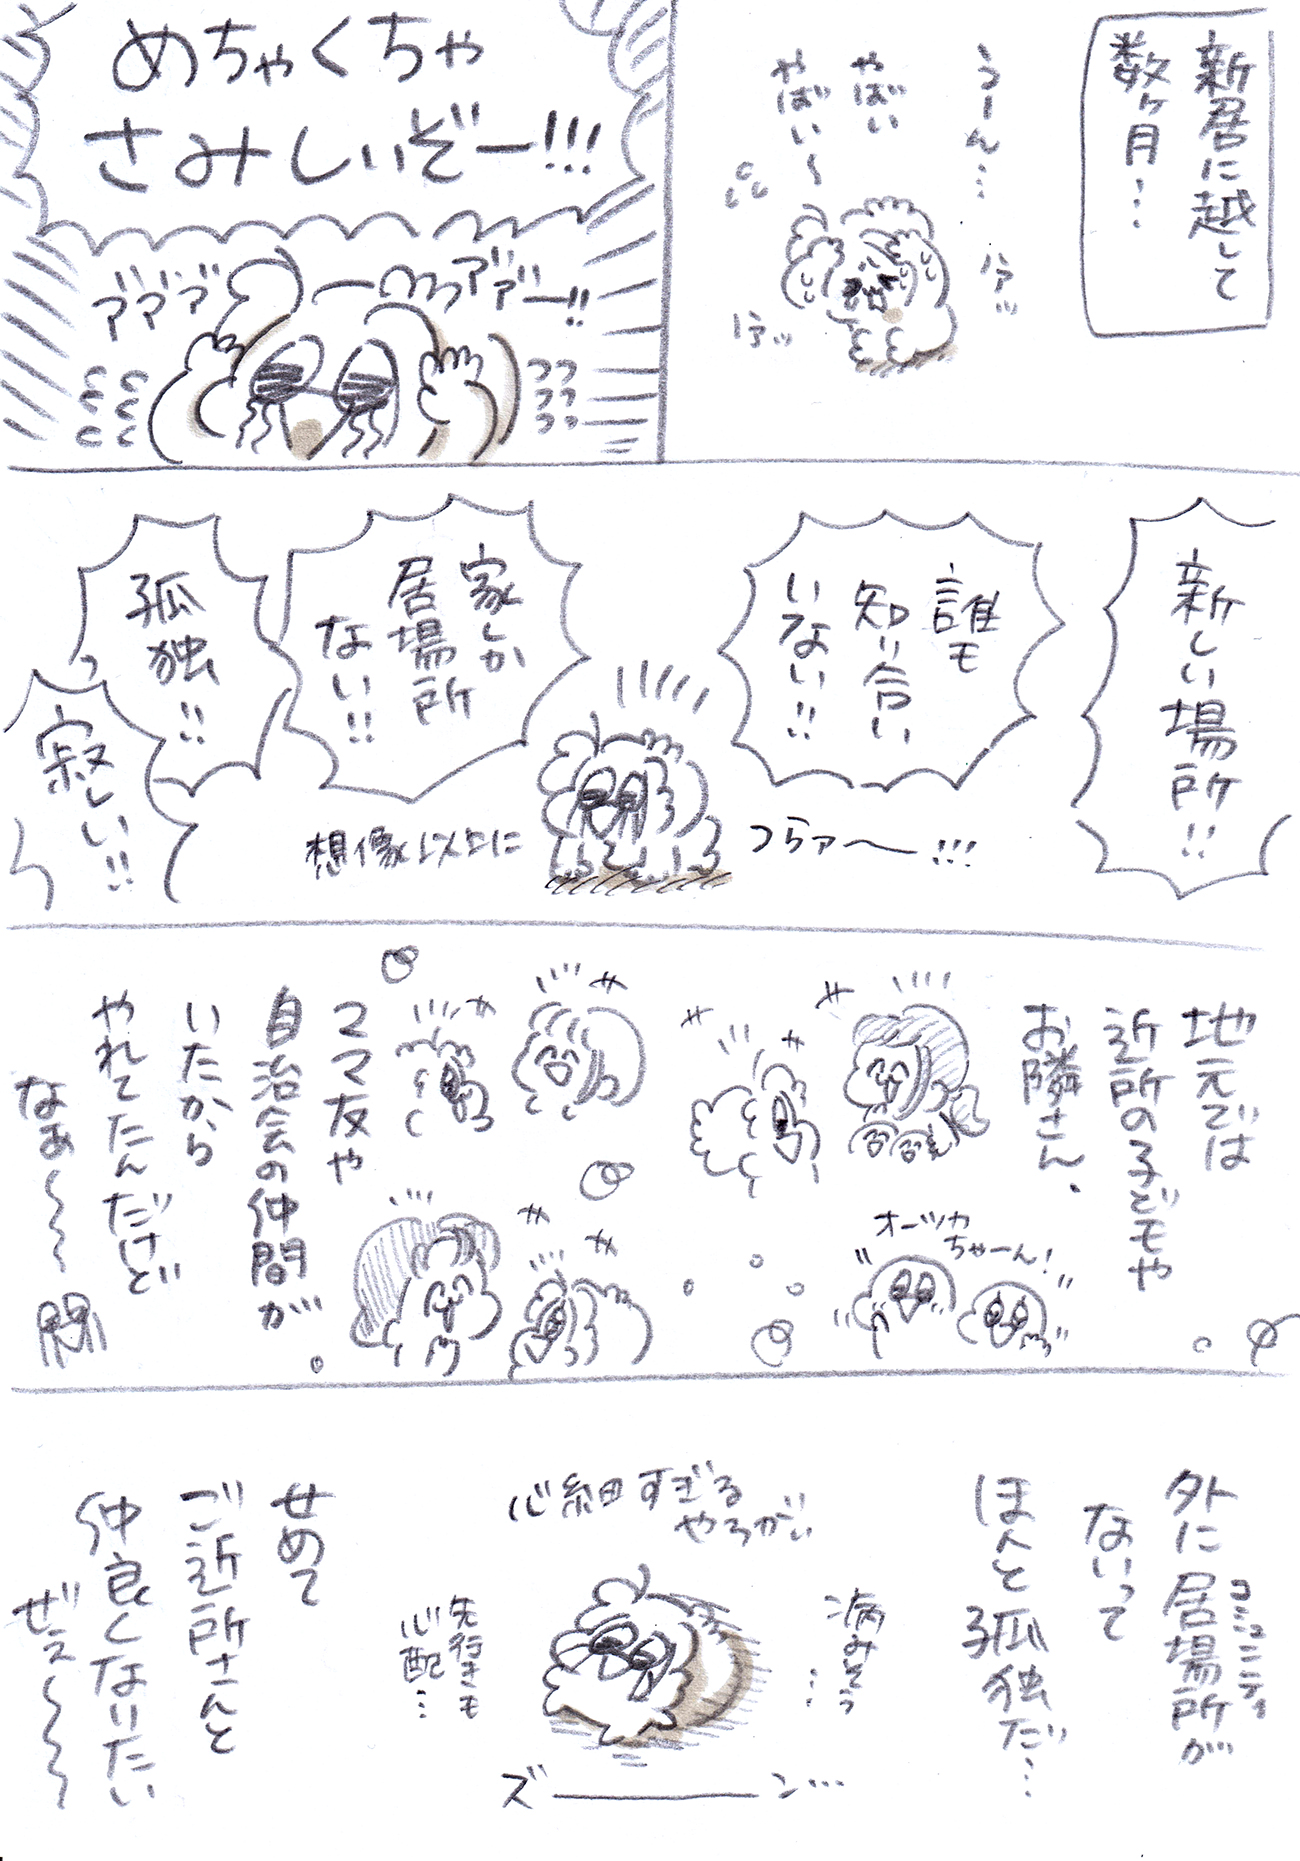 新居に越して
数ヶ月…
うーん…
やばい
やばい〜
ハァッ
ハァッ
めちゃくちゃ
さみしいぞー!!!
アアアーーッアアー!!
新しい場所!!
誰も
知り合い
いない!!
家しか
居場所
ない!!
孤独!!
寂しい!!
想像以上に
つらァ〜!!!
地元では
近所の子どもや
お隣さん、
オーツカ
ちゃーん!
ママ友や
自治会の仲間が
いたから
やれてたんだけど
なぁ〜〜〜
外に居場所が
コミュニティ
ないって
ほんと孤独だ…
心細すぎる
やろがい
病みそう
…
先行きも
心配…
ズーーン…
せめて
ご近所さんと
仲良くなりたい
ぜえ〜〜〜